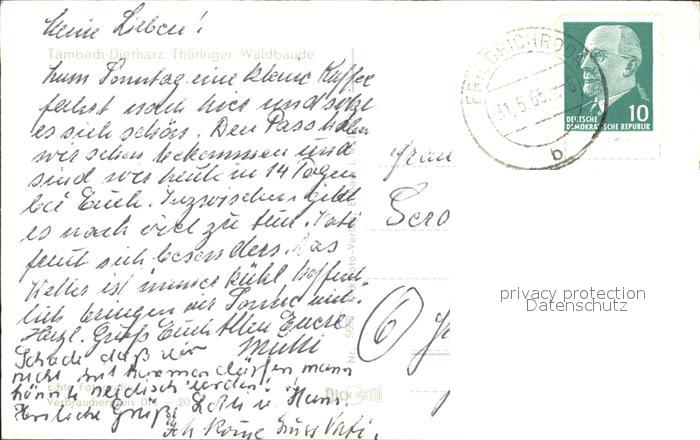 Meine Lieben!
Tambach-Dietharz Thüringer Waldbaude
Zum Sonntag eine kleine Kaffee
fahrt nach hier und
es sich schön. Den Pass haben
wir schon bekommen und
sind wir heute in 14 Tagen
bei Euch. Inzwischen gibt
es noch viel zu tun. Vati
freut sich besonders. Das
Wetter ist immer kühl hoffent-
lich bringen wir Sonne mit.
Herzl. Grüße Euch Allen Eure
Mutti
Schade daß wir
nicht mit kommen dürfen, mann
könnte neidisch werden!
Herzliche Grüße Lotti u. Hans.
Ich komme Gruss Vati.
Frau
6
FRIEDRICHRODA
31.5.65
b
10
DEUTSCHE
DEMOKRATISCHE REPUBLIK
privacy protection
Datenschutz